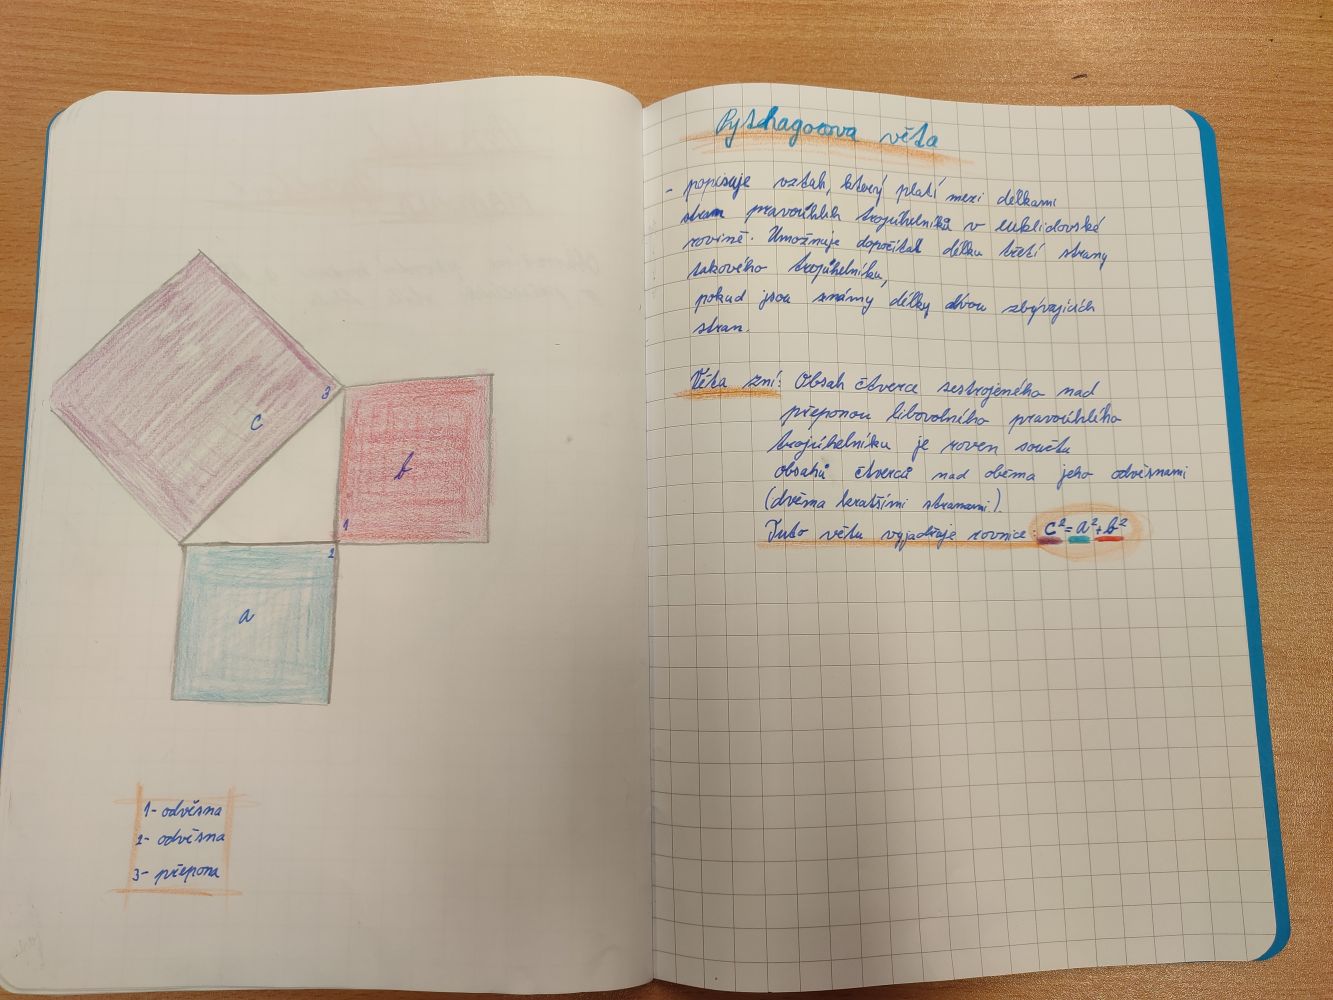 c
3
b
1
2
a
1- odvěsna
2- odvěsna
3- přepona
Pythagorova věta
- popisuje vztah, který platí mezi délkami
stran pravoúhlých trojúhelníků v euklidovské
rovině. Umožnuje dopočítat délku třetí strany
takového trojúhelníku,
pokud jsou známy délky dvou zbývajících
stran.
Věta zní: Obsah čtverce sestrojeného nad
přeponou libovolného pravoúhlého
trojúhelníku je roven součtu
obsahů čtverců nad oběma jeho odvěsnami
(dvěma kratšími stranami).
Tuto větu vyjadřuje rovnice: c²=a²+b²